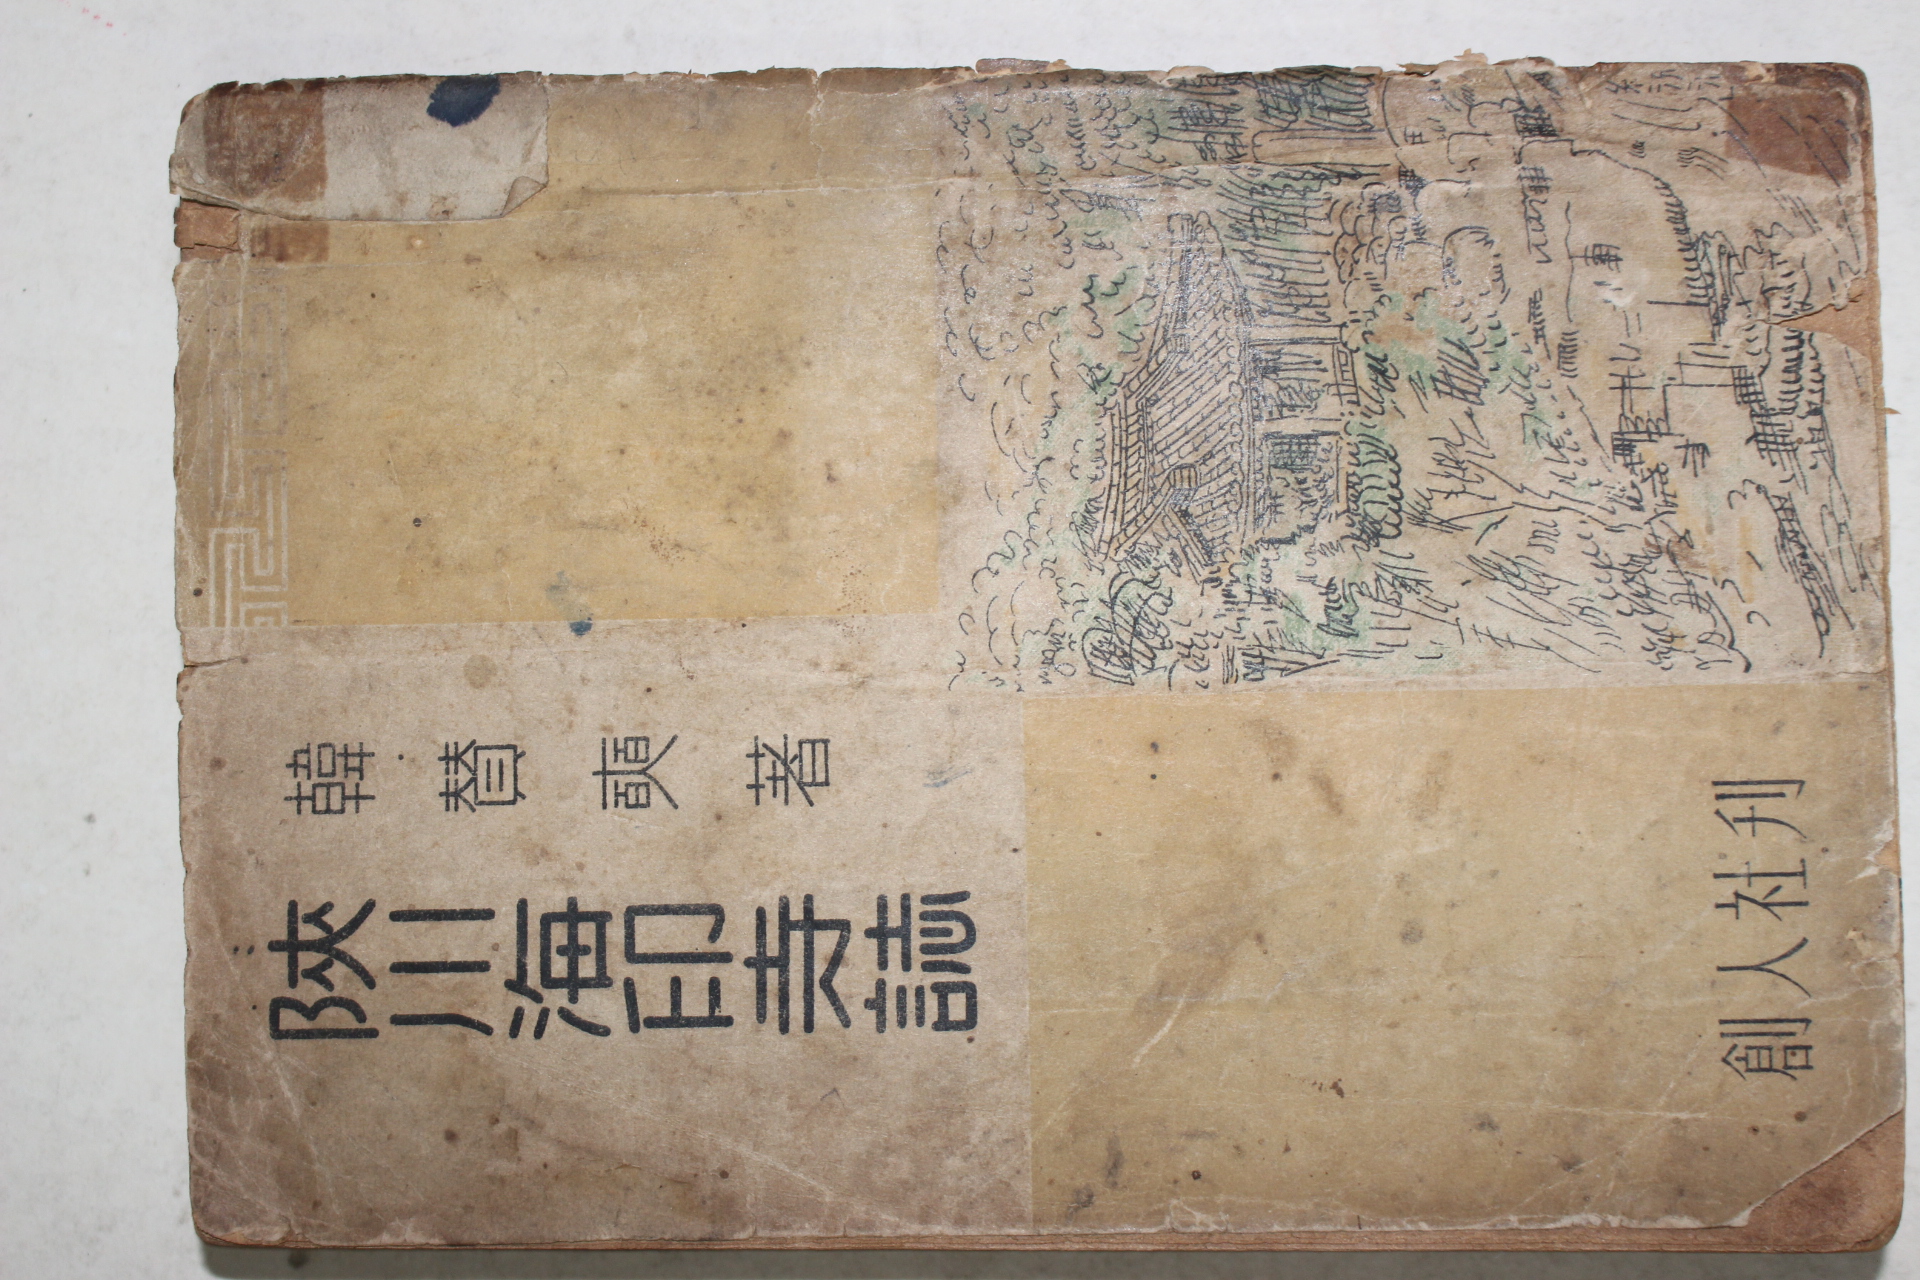 韓賛奭著
陜川海印寺誌
創人社刊